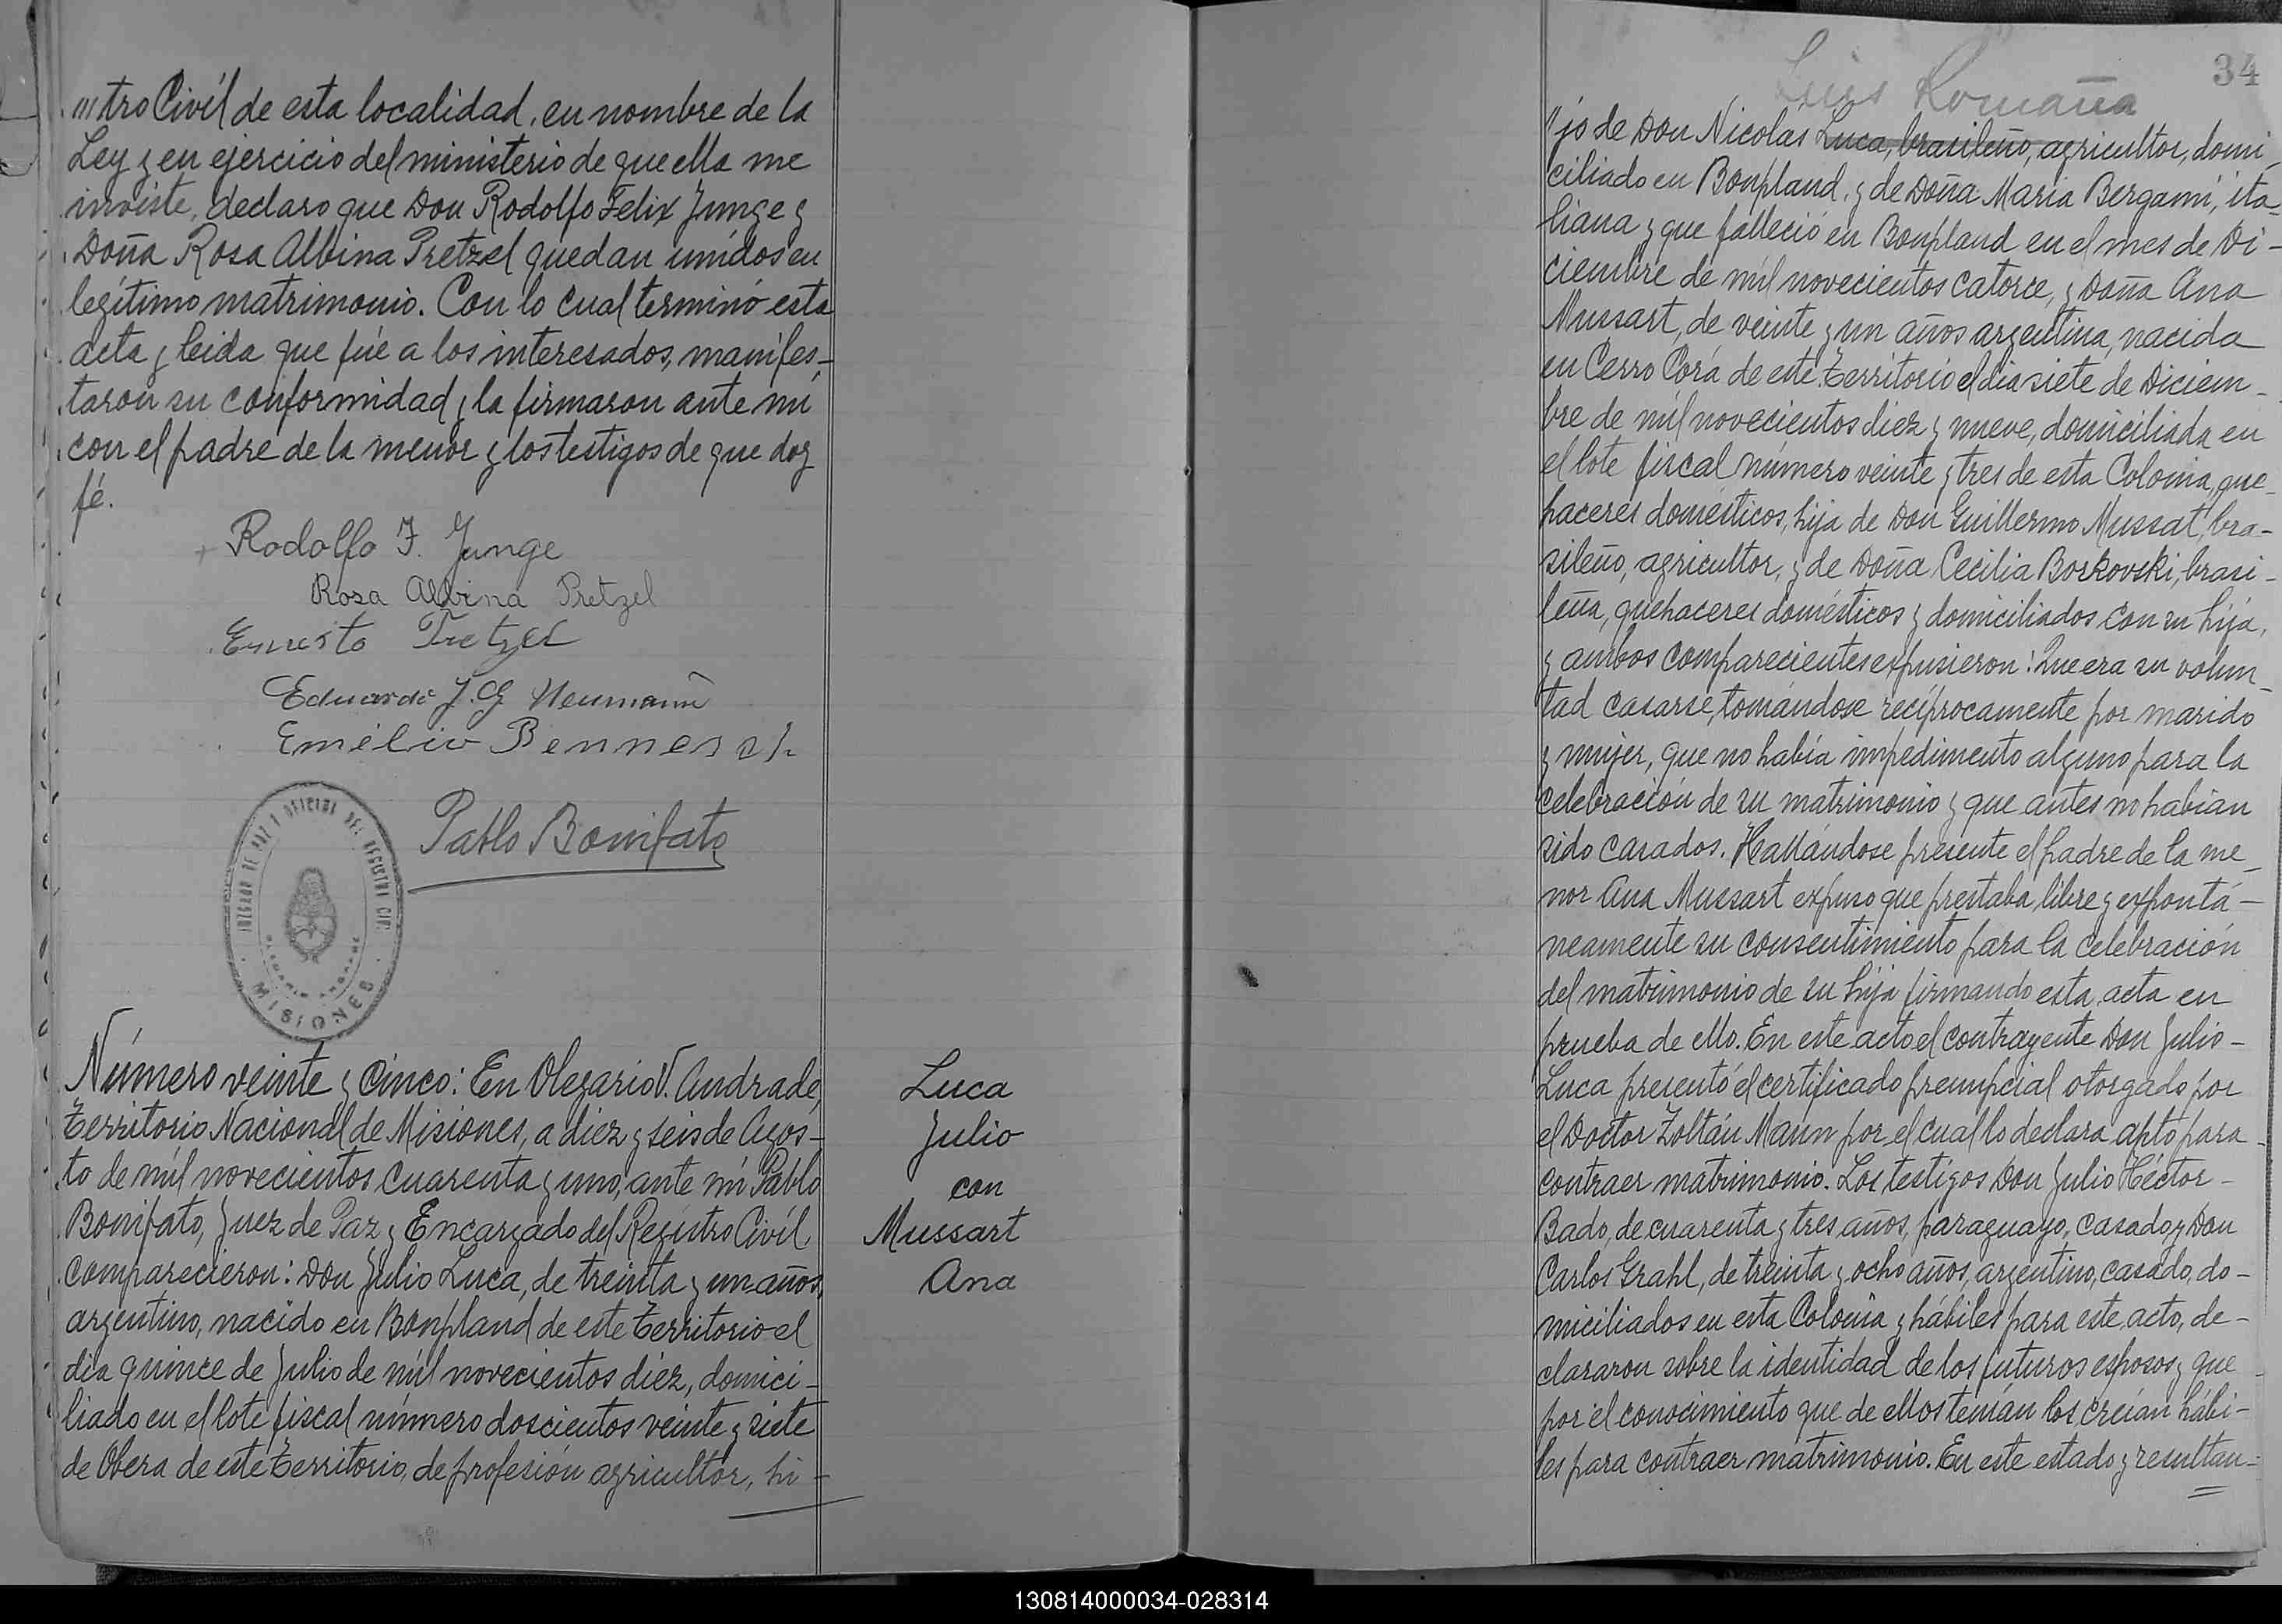 "tro Civil de esta localidad, en nombre de la
Ley y en ejercicio del ministerio de que ella me
inviste, declaro que Don Rodolfo Felix Junge y
Doña Rosa Albina Pretzel quedan unidos en
legítimo matrimonio. Con lo cual terminó esta
acta y leida que fué a los interesados, manifes-
taron su conformidad y la firmaron ante mi
con el padre de la menor y los testigos de que doy
fé.
Rodolfo F. Junge
Rosa Albina Pretzel
Ernesto Pretzel
Eduardo J. G Neumann
Emilio Bennes
Pablo Bonifato
JUZGADO DE PAZ Y OFICIAL DEL REGISTRO CIVIL
MISIONES
Número veinte y cinco: En Olegario V. Andrade,
Territorio Nacional de Misiones, a diez y seis de Agos-
to de mil novecientos cuarenta y uno, ante mi Pablo
Bonifato, Juez de Paz y Encargado del Registro Civil
comparecieron: Don Julio Luca, de treinta y un años,
argentino, nacido en Bonpland de este Territorio el
dia quince de Julio de mil novecientos diez, domici-
liado en el lote fiscal número doscientos veinte y siete
de Obera de este Territorio, de profesión agricultor, hi-
Luca
Julio
con
Mussart
Ana
34
Luis Romaña
"jo de Don Nicolas Luca, brasileño, agricultor, domi-
ciliado en Bonpland, y de Doña Maria Bergami, ita-
liana y que falleció en Bonpland en el mes de Di-
ciembre de mil novecientos catorce, y Doña Ana
Mussart, de veinte y un años argentina, nacida
en Cerro Corá de este Territorio el dia siete de Diciem-
bre de mil novecientos diez y nueve, domiciliada en
el lote fiscal número veinte y tres de esta Colonia, que-
haceres domésticos, hija de Don Guillermo Mussat, bra-
sileño, agricultor, y de Doña Cecilia Borkovski, brasi-
leña, quehaceres domésticos y domiciliados con su hija,
y ambos comparecientes expusieron: Que era su volun-
tad casarse, tomándose recíprocamente por marido
y mujer, que no había impedimento alguno para la
celebración de su matrimonio y que antes no habian
sido casados. Hallándose presente el padre de la me-
nor Ana Mussart expuso que prestaba libre y expontá-
neamente su consentimiento para la celebración
del matrimonio de su hija firmando esta acta en
prueba de ello. En este acto el contrayente Don Julio-
Luca presentó el certificado prenupcial otorgado por
el Doctor Zoltán Mann por el cual lo declara apto para
contraer matrimonio. Los testigos Don Julio Héctor-
Bado, de cuarenta y tres años, paraguayo, casado y Don
Carlos Grahl, de treinta y ocho años, argentino, casado, do-
miciliados en esta Colonia y hábiles para este acto, de-
clararon sobre la identidad de los futuros esposos y que
por el conocimiento que de ellos tenían los creían hábi-
les para contraer matrimonio. En este estado y resultan-
130814000034-028314